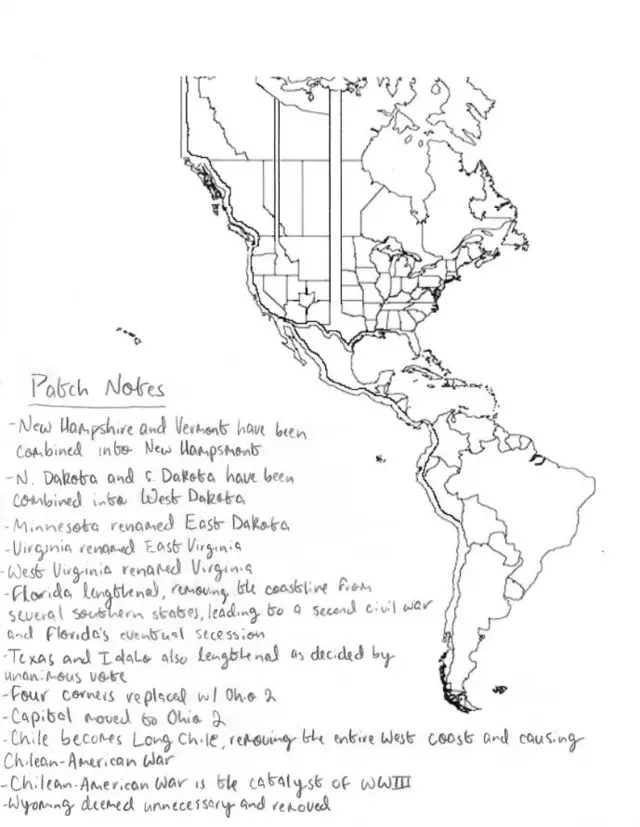 Patch Notes
-New Hampshire and Vermont have been
combined into New Hampsmont
-N. Dakota and S. Dakota have been
combined into West Dakota
-Minnesota renamed East Dakota
-Virginia renamed East Virginia
-West Virginia renamed Virginia
-Florida lengthened, removing the coastline from
several southern states, leading to a second civil war
and Florida's eventual secession
-Texas and Idaho also lengthened as decided by
unanimous vote
-Four corners replaced w/ Ohio 2
-Capital moved to Ohio 2
-Chile becomes Long Chile, removing the entire West coast and causing
Chilean-American War
-Chilean-American War is the catalyst of WWIII
-Wyoming deemed unnecessary and removed